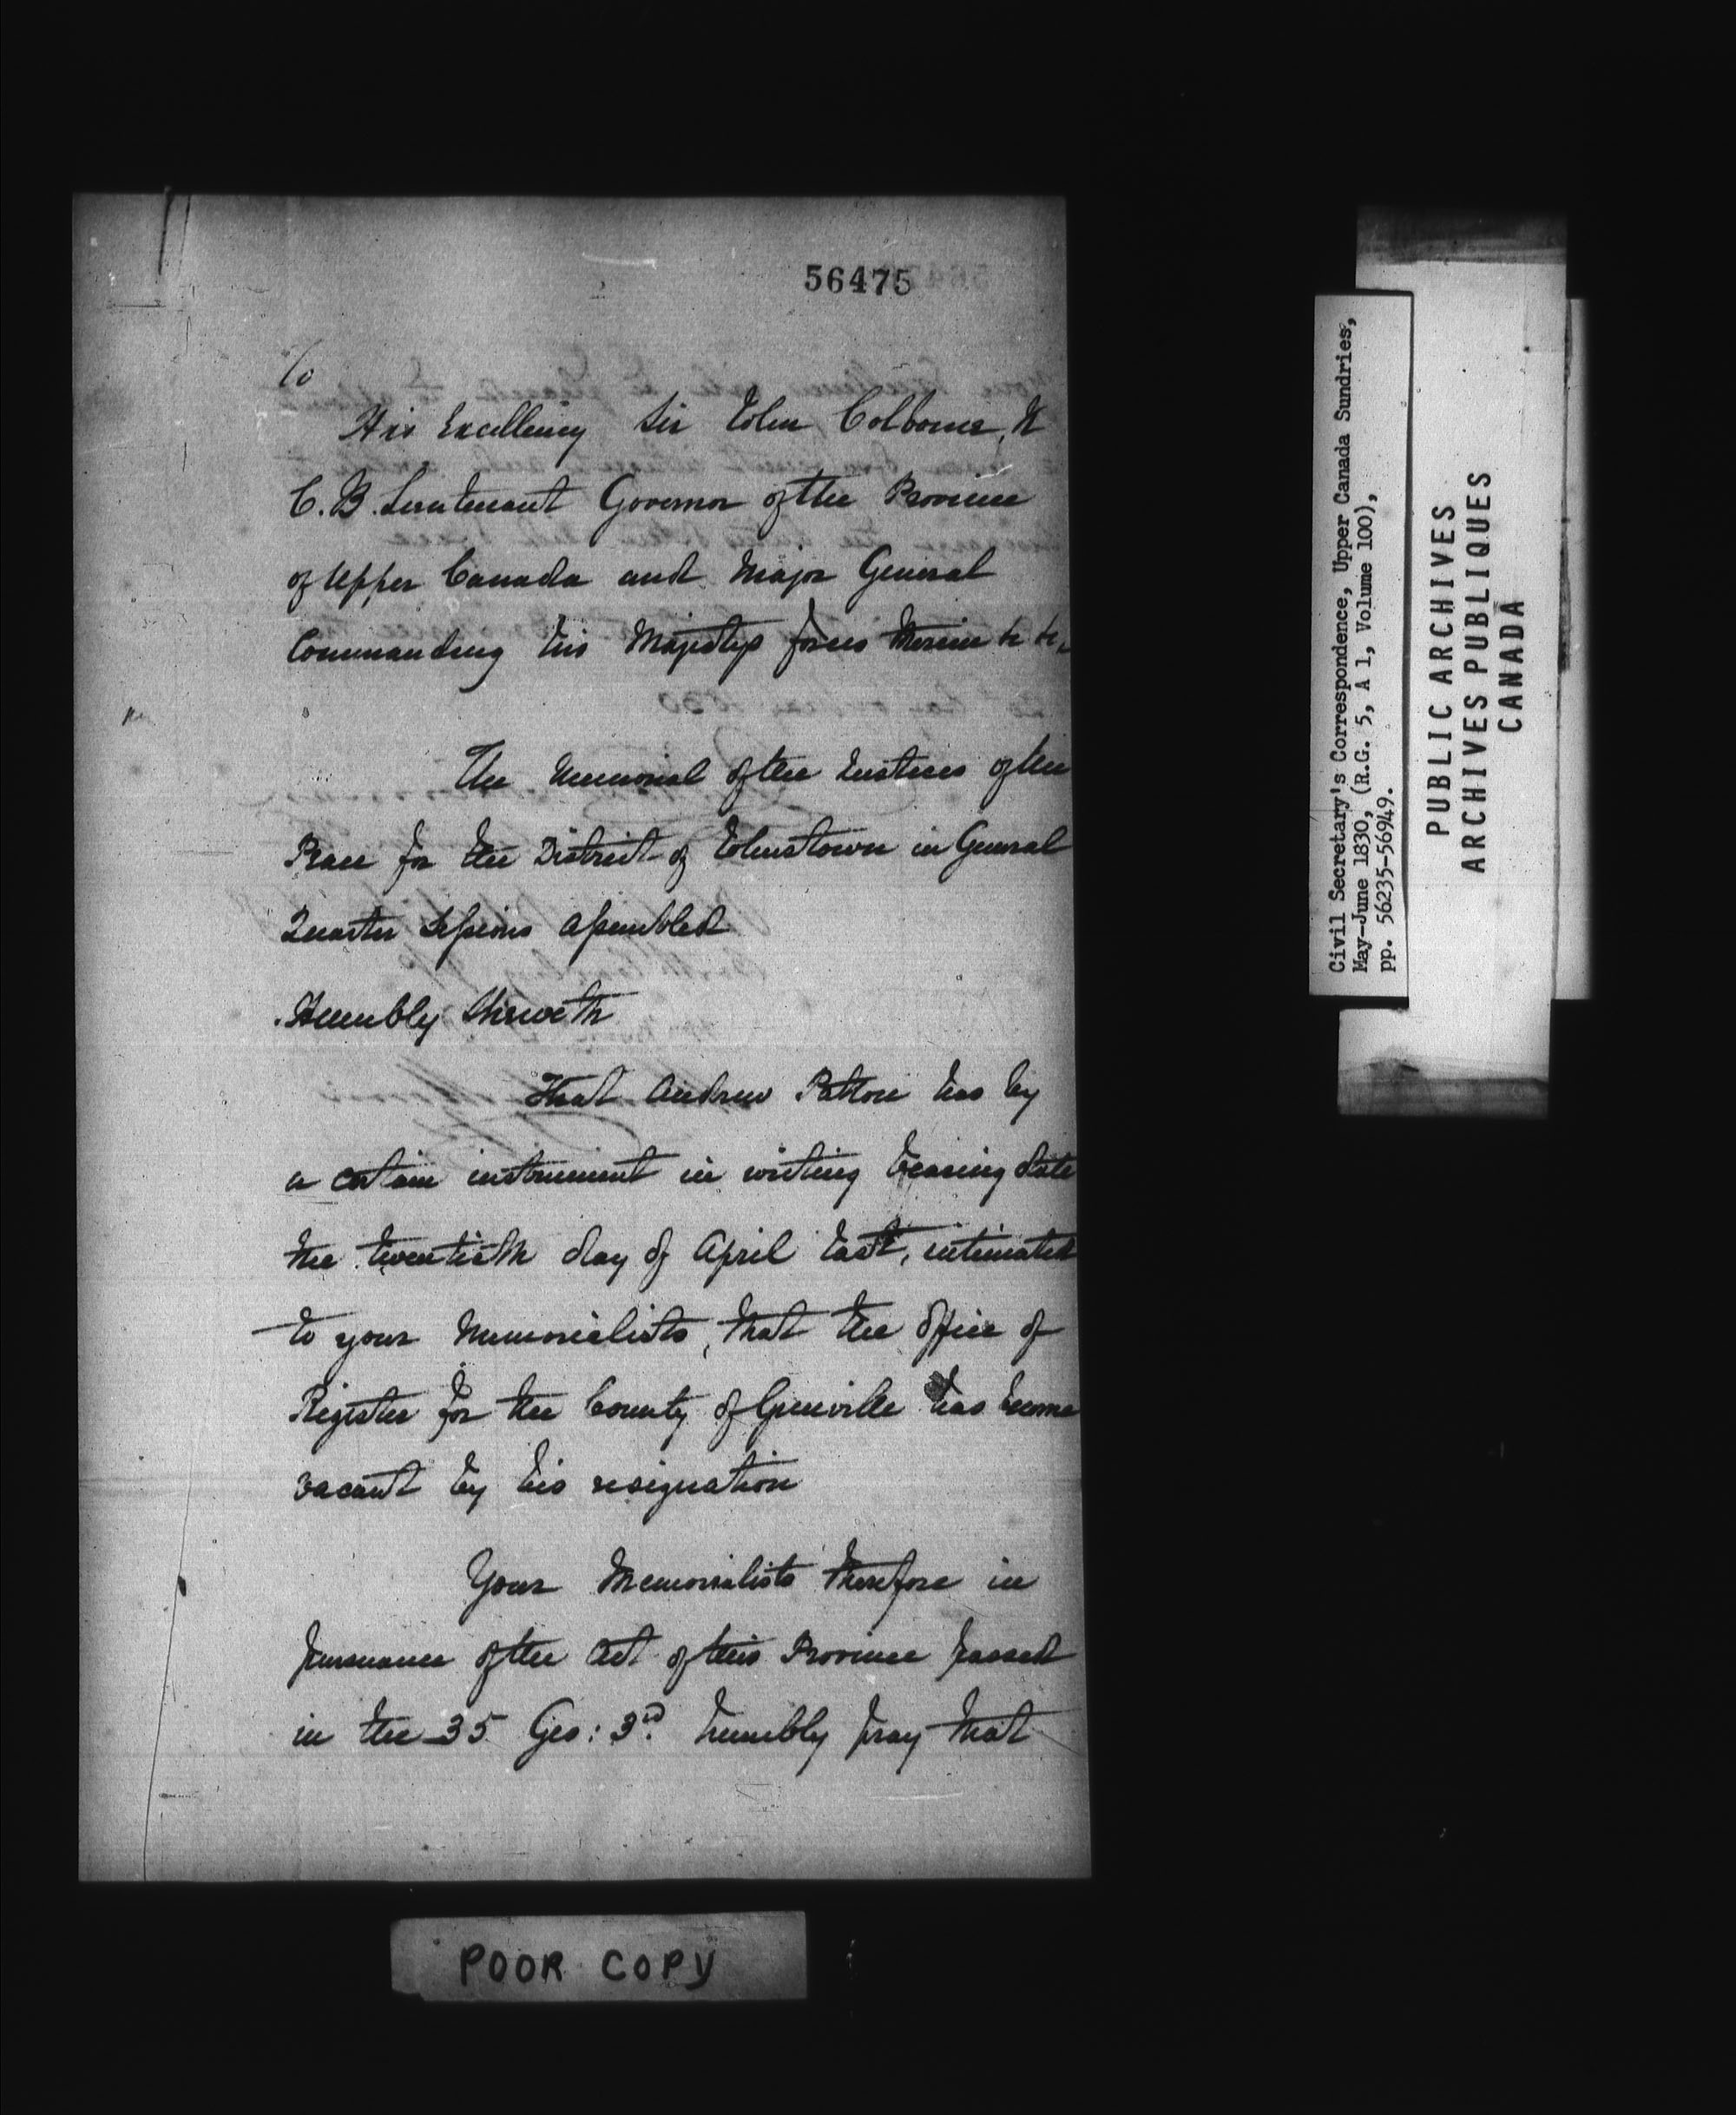 56475
To
His Excellency Sir John Colborne, K
C.B. Lieutenant Governor of the Province
of Upper Canada and Major General
Commanding his Majestys forces therein &c &c,
The Memorial of the Justices of the
Peace for the District of Johnstown in General
Quarter Sessions assembled
Humbly Sheweth
That Andrew Patton has by
a certain instrument in writing bearing date
the twentieth day of April last, intimated
to your Memorialists, that the office of
Register for the County of Grenville has become
vacant by his resignation
Your Memorialists therefore in
pursuance of the Act of this Province passed
in the 35 Geo: 3rd. humbly pray that
POOR COPY
Civil Secretary's Correspondence, Upper Canada Sundries,
May-June 1830, (R.G. 5, A 1, Volume 100),
pp. 56235-56949.
PUBLIC ARCHIVES
ARCHIVES PUBLIQUES
CANADA